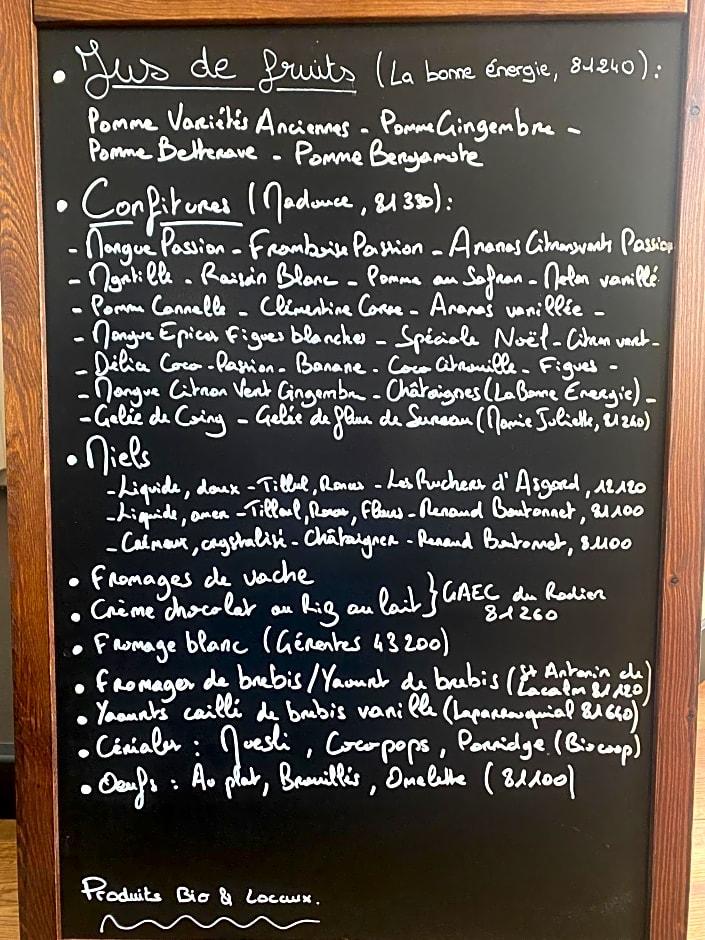 • Jus de fruits (La bonne énergie, 81240) :
Pomme Variétés Anciennes - Pomme Gingembre -
Pomme Betterave - Pomme Bergamote
• Confitures (Nadouce, 81330) :
- Mangue Passion - Framboise Passion - Ananas Citron vert Passion
- Myrtille - Raisin Blanc - Pomme au Safran - Melon vanillé
- Pomme Cannelle - Clémentine Corse - Ananas vanillée -
- Mangue Epices Figues blanches - Spéciale Noël - Citron vert -
- Délice Coco-Passion - Banane - Coco Citrouille - Figues -
- Mangue Citron Vert Gingembre - Châtaignes (La Bonne Énergie) -
- Gelée de Coing - Gelée de fleur de Sureau (Mamie Juliette, 81240)
• Miels
- Liquide, doux - Tilleul, Ronces - Les Ruchers d'Asgard, 12120
- Liquide, amer - Tilleul, Ronces, Fleurs - Renaud Boutonnet, 81100
- Crémeux, crystalisé - Châtaignier - Renaud Boutonnet, 81100
• Fromages de vache
• Crème chocolat ou Riz au lait } GAEC du Rodier
81260
• Fromage blanc (Gérentes 43200)
• Fromages de brebis / Yaourt de brebis (St Antonin de
Lacalm 81120)
• Yaourts caillé de brebis vanille (Laparrouquial 81640)
• Céréales : Muesli, Cocopops, Porridge (Biocoop)
• Oeufs : Au plat, Brouillés, Omelette (81100)
Produits Bio & Locaux.